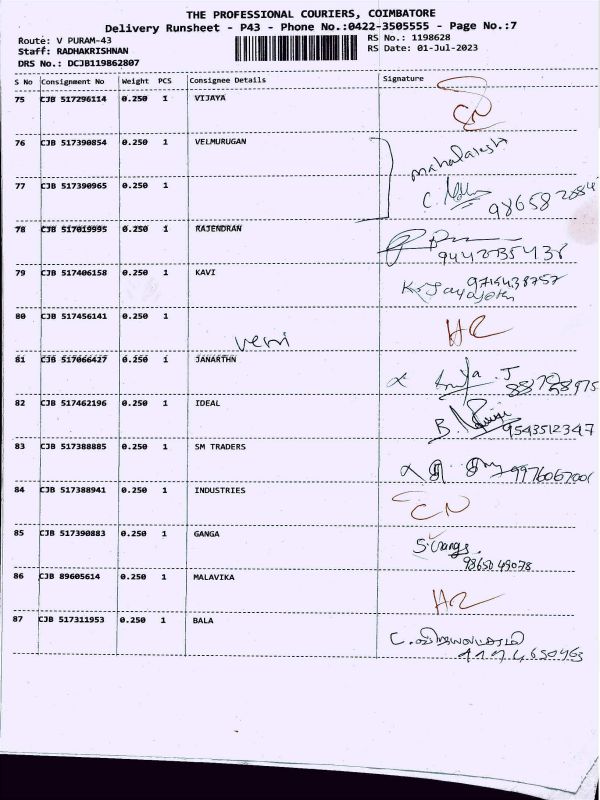 THE PROFESSIONAL COURIERS, COIMBATORE
Delivery Runsheet - P43 - Phone No.:0422-3505555 - Page No.:7
Route: V PURAM-43 RS No.: 1198628
Staff: RADHAKRISHNAN RS Date: 01-Jul-2023
DRS No.: DCJB119862807
S No Consignment No Weight PCS Consignee Details Signature
75 CJB 517296114 0.250 1 VIJAYA
76 CJB 517390854 0.250 1 VELMURUGAN
77 CJB 517390965 0.250 1
78 CJB 517019995 0.250 1 RAJENDRAN
79 CJB 517406158 0.250 1 KAVI
80 CJB 517456141 0.250 1
81 CJB 517066427 0.250 1 JANARTHN
82 CJB 517462196 0.250 1 IDEAL 9543512347
83 CJB 517388885 0.250 1 SM TRADERS
84 CJB 517388941 0.250 1 INDUSTRIES
85 CJB 517390883 0.250 1 GANGA
9865049078
86 CJB 89605614 0.250 1 MALAVIKA
87 CJB 517311953 0.250 1 BALA